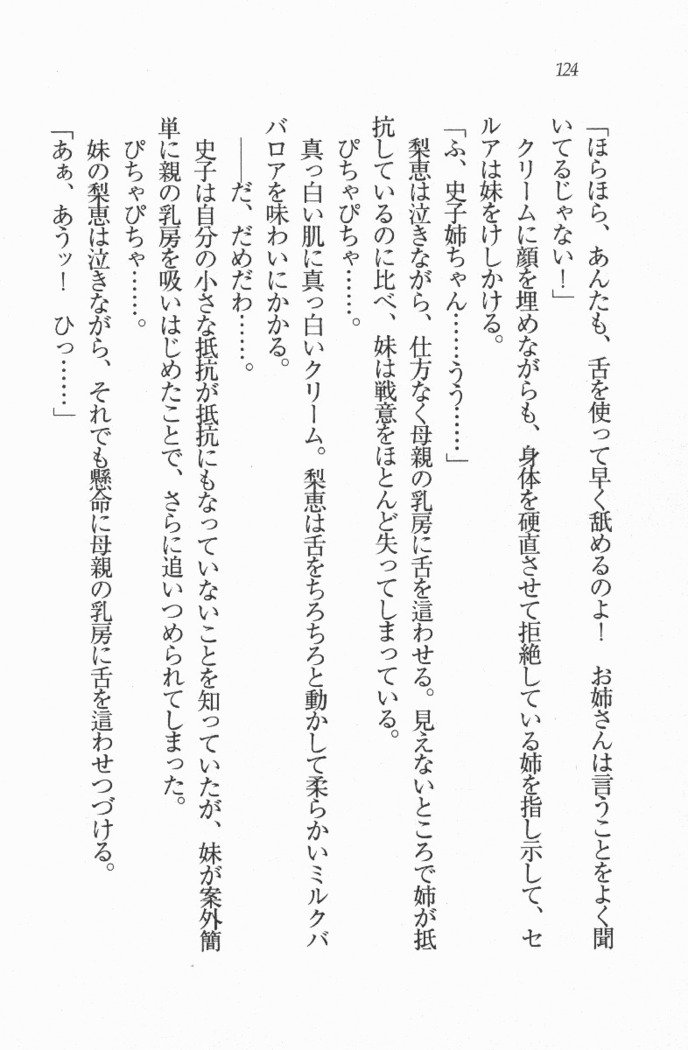 124
「ほらほら、あんたも、舌を使って早く舐めるのよ！　お姉さんは言うことをよく聞
いてるじゃない！」
クリームに顔を埋めながらも、身体を硬直させて拒絶している姉を指し示して、セ
ルアは妹をけしかける。
「ふ、史子姉ちゃん……うう……」
梨恵は泣きながら、仕方なく母親の乳房に舌を這わせる。見えないところで姉が抵
抗しているのに比べ、妹は戦意をほとんど失ってしまっている。
ぴちゃぴちゃ……。
真っ白い肌に真っ白いクリーム。梨恵は舌をちろちろと動かして柔らかいミルクバ
バロアを味わいにかかる。
――だ、だめだわ……。
史子は自分の小さな抵抗が抵抗にもなっていないことを知っていたが、妹が案外簡
単に親の乳房を吸いはじめたことで、さらに追いつめられてしまった。
ぴちゃぴちゃ……。
妹の梨恵は泣きながら、それでも懸命に母親の乳房に舌を這わせつづける。
「あぁ、あうッ！　ひっ……」